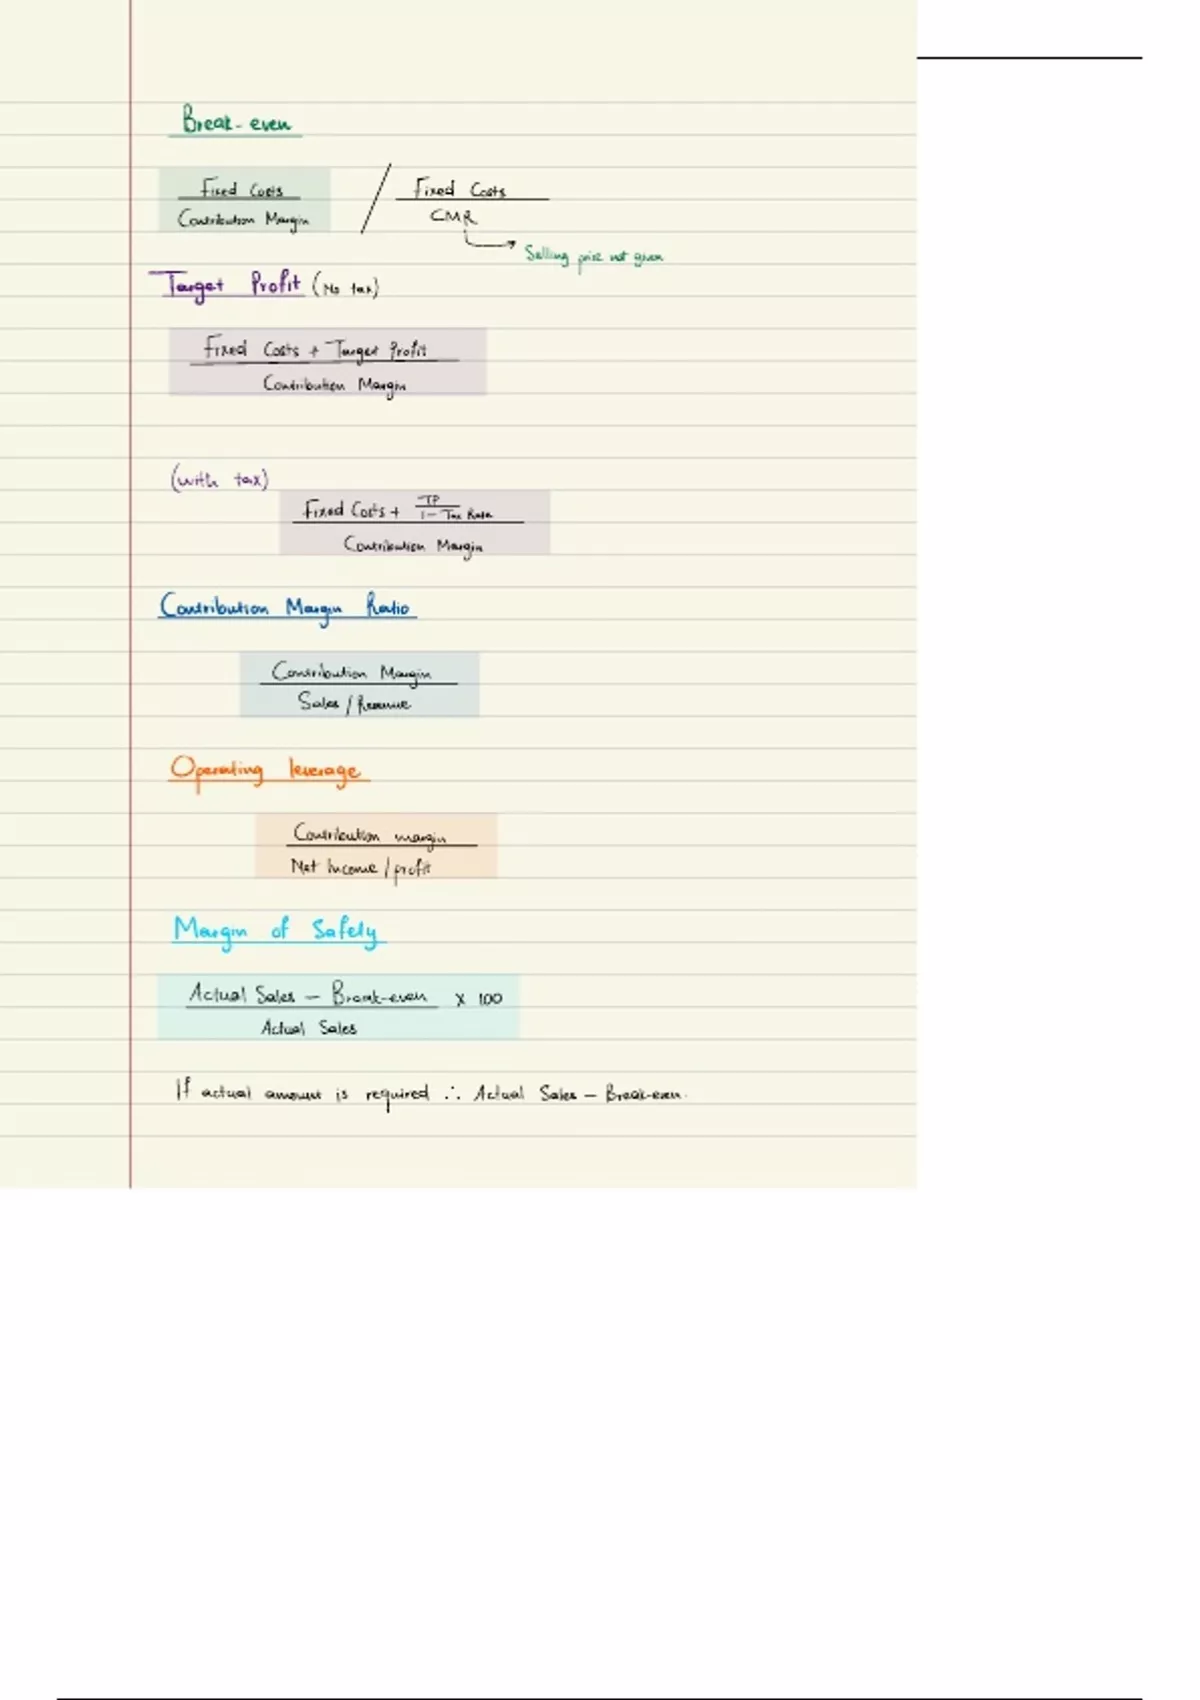 Break-even
Fixed Costs / Fixed Costs
Contribution Margin CMR
Selling price not given
Target Profit (No tax)
Fixed Costs + Target Profit
Contribution Margin
(with tax)
TP
Fixed Costs + 1 - Tax Rate
Contribution Margin
Contribution Margin Ratio
Contribution Margin
Sales / Revenue
Operating leverage
Contribution margin
Net Income / profit
Margin of Safety
Actual Sales - Break-even x 100
Actual Sales
If actual amount is required ∴ Actual Sales - Break-even.